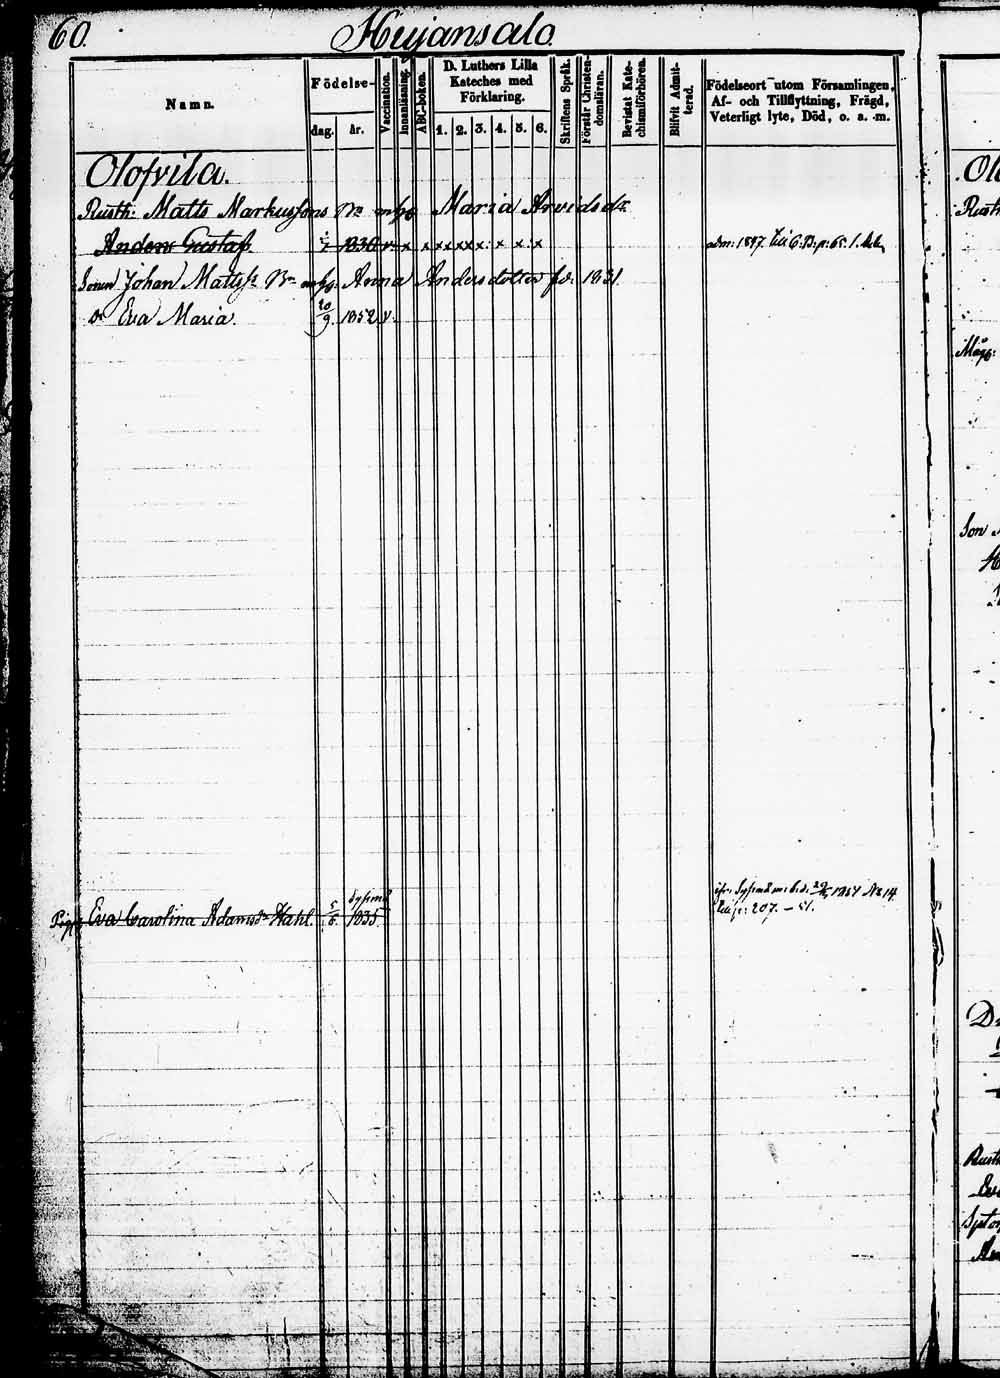 60.
Hujansalo.
Namn.
Födelse-
dag. år.
Vaccination.
Innanläsning.
ABC-boken.
D. Luthers Lilla
Kateches med
Förklaring.
1. 2. 3. 4. 5. 6.
Skriftens Språk.
Förstår Christen-
domsläran.
Bevistat Kate-
chismiförhören.
Blifvit Admit-
terad.
Födelseort utom Församlingen,
Af- och Tillflyttning, Frägd,
Veterligt lyte, Död, o. a. m.
Olofvila.
Rusth: Matts Markussons Maria Arvidsdr.
Anders Gustaf 1830 v. x x x x x x x x x adm: 1847 till p: 65.
Sonen Johan Matts Anna Andersdotter fd: 1831.
Dr Eva Maria. 20/9. 1852 v.
Sysmä
Pig. Eva Carolina Adamsdr Stahl. 5/5. 1835.
Sysmä 1854 No 14
till p: 207. – 51.
Rusth
Måg:
Son
Rusth